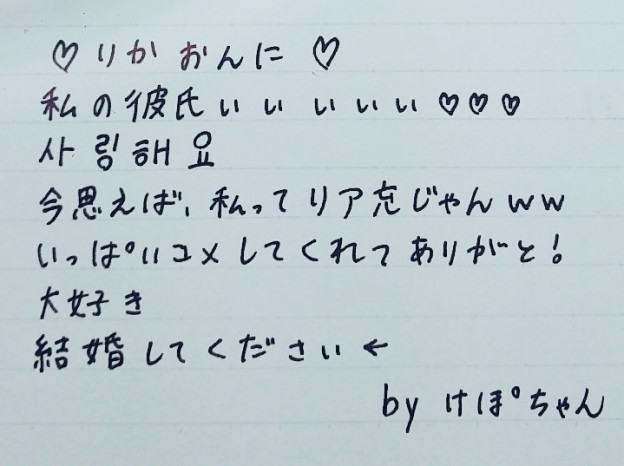 ♡ りか おんに ♡
私の彼氏ぃぃぃぃぃ♡♡♡
사랑해요
今思えば、私ってリア充じゃんww
いっぱいコメしてくれてありがと!
大好き
結婚してください←
by けぽちゃん